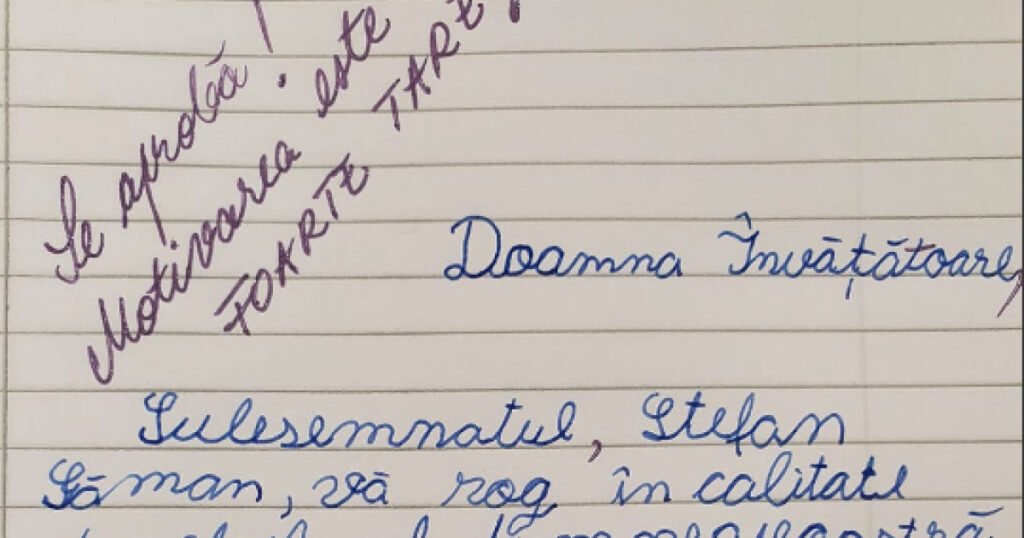 Se aprobă!
Motivarea este
FOARTE TARE!
Doamna Învățătoare,
Sulesemnatul, Ștefan
Șăman, vă rog, în calitate